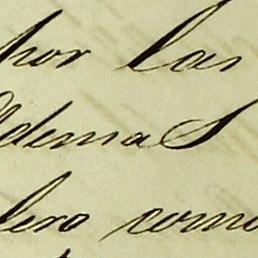 por las
demas
lero como